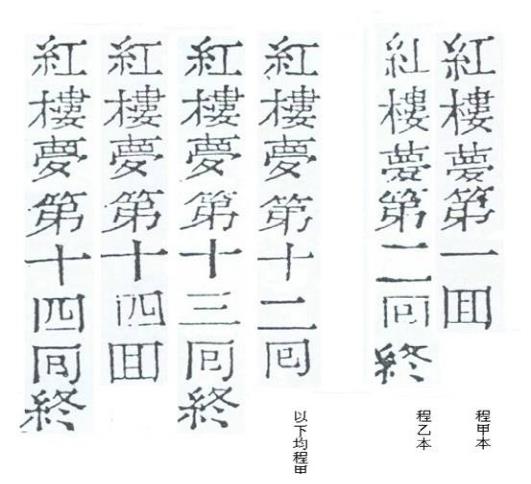 紅樓夢第一囬
程甲本
紅樓夢第二回終
程乙本
紅樓夢第十二囘
以下均程甲
紅樓夢第十三回終
紅樓夢第十四囬
紅樓夢第十四回終